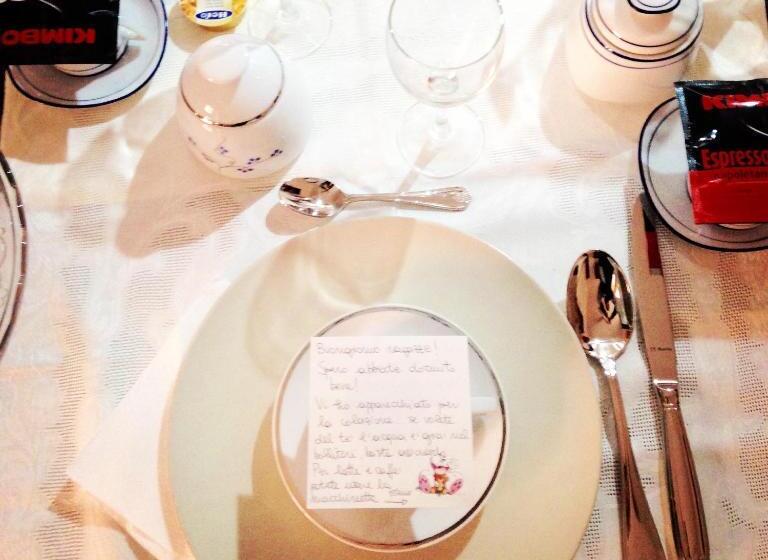 KIMBO
Hero
KIMBO
Espresso
napoletano
Buongiorno ragazze!
Spero abbiate dormito
bene!
Vi ho apparecchiato per
la colazione. se volete
del tè l'acqua è già nel
bollitore basta accenderlo
Per latte e caffè
potete usare la
macchinetta